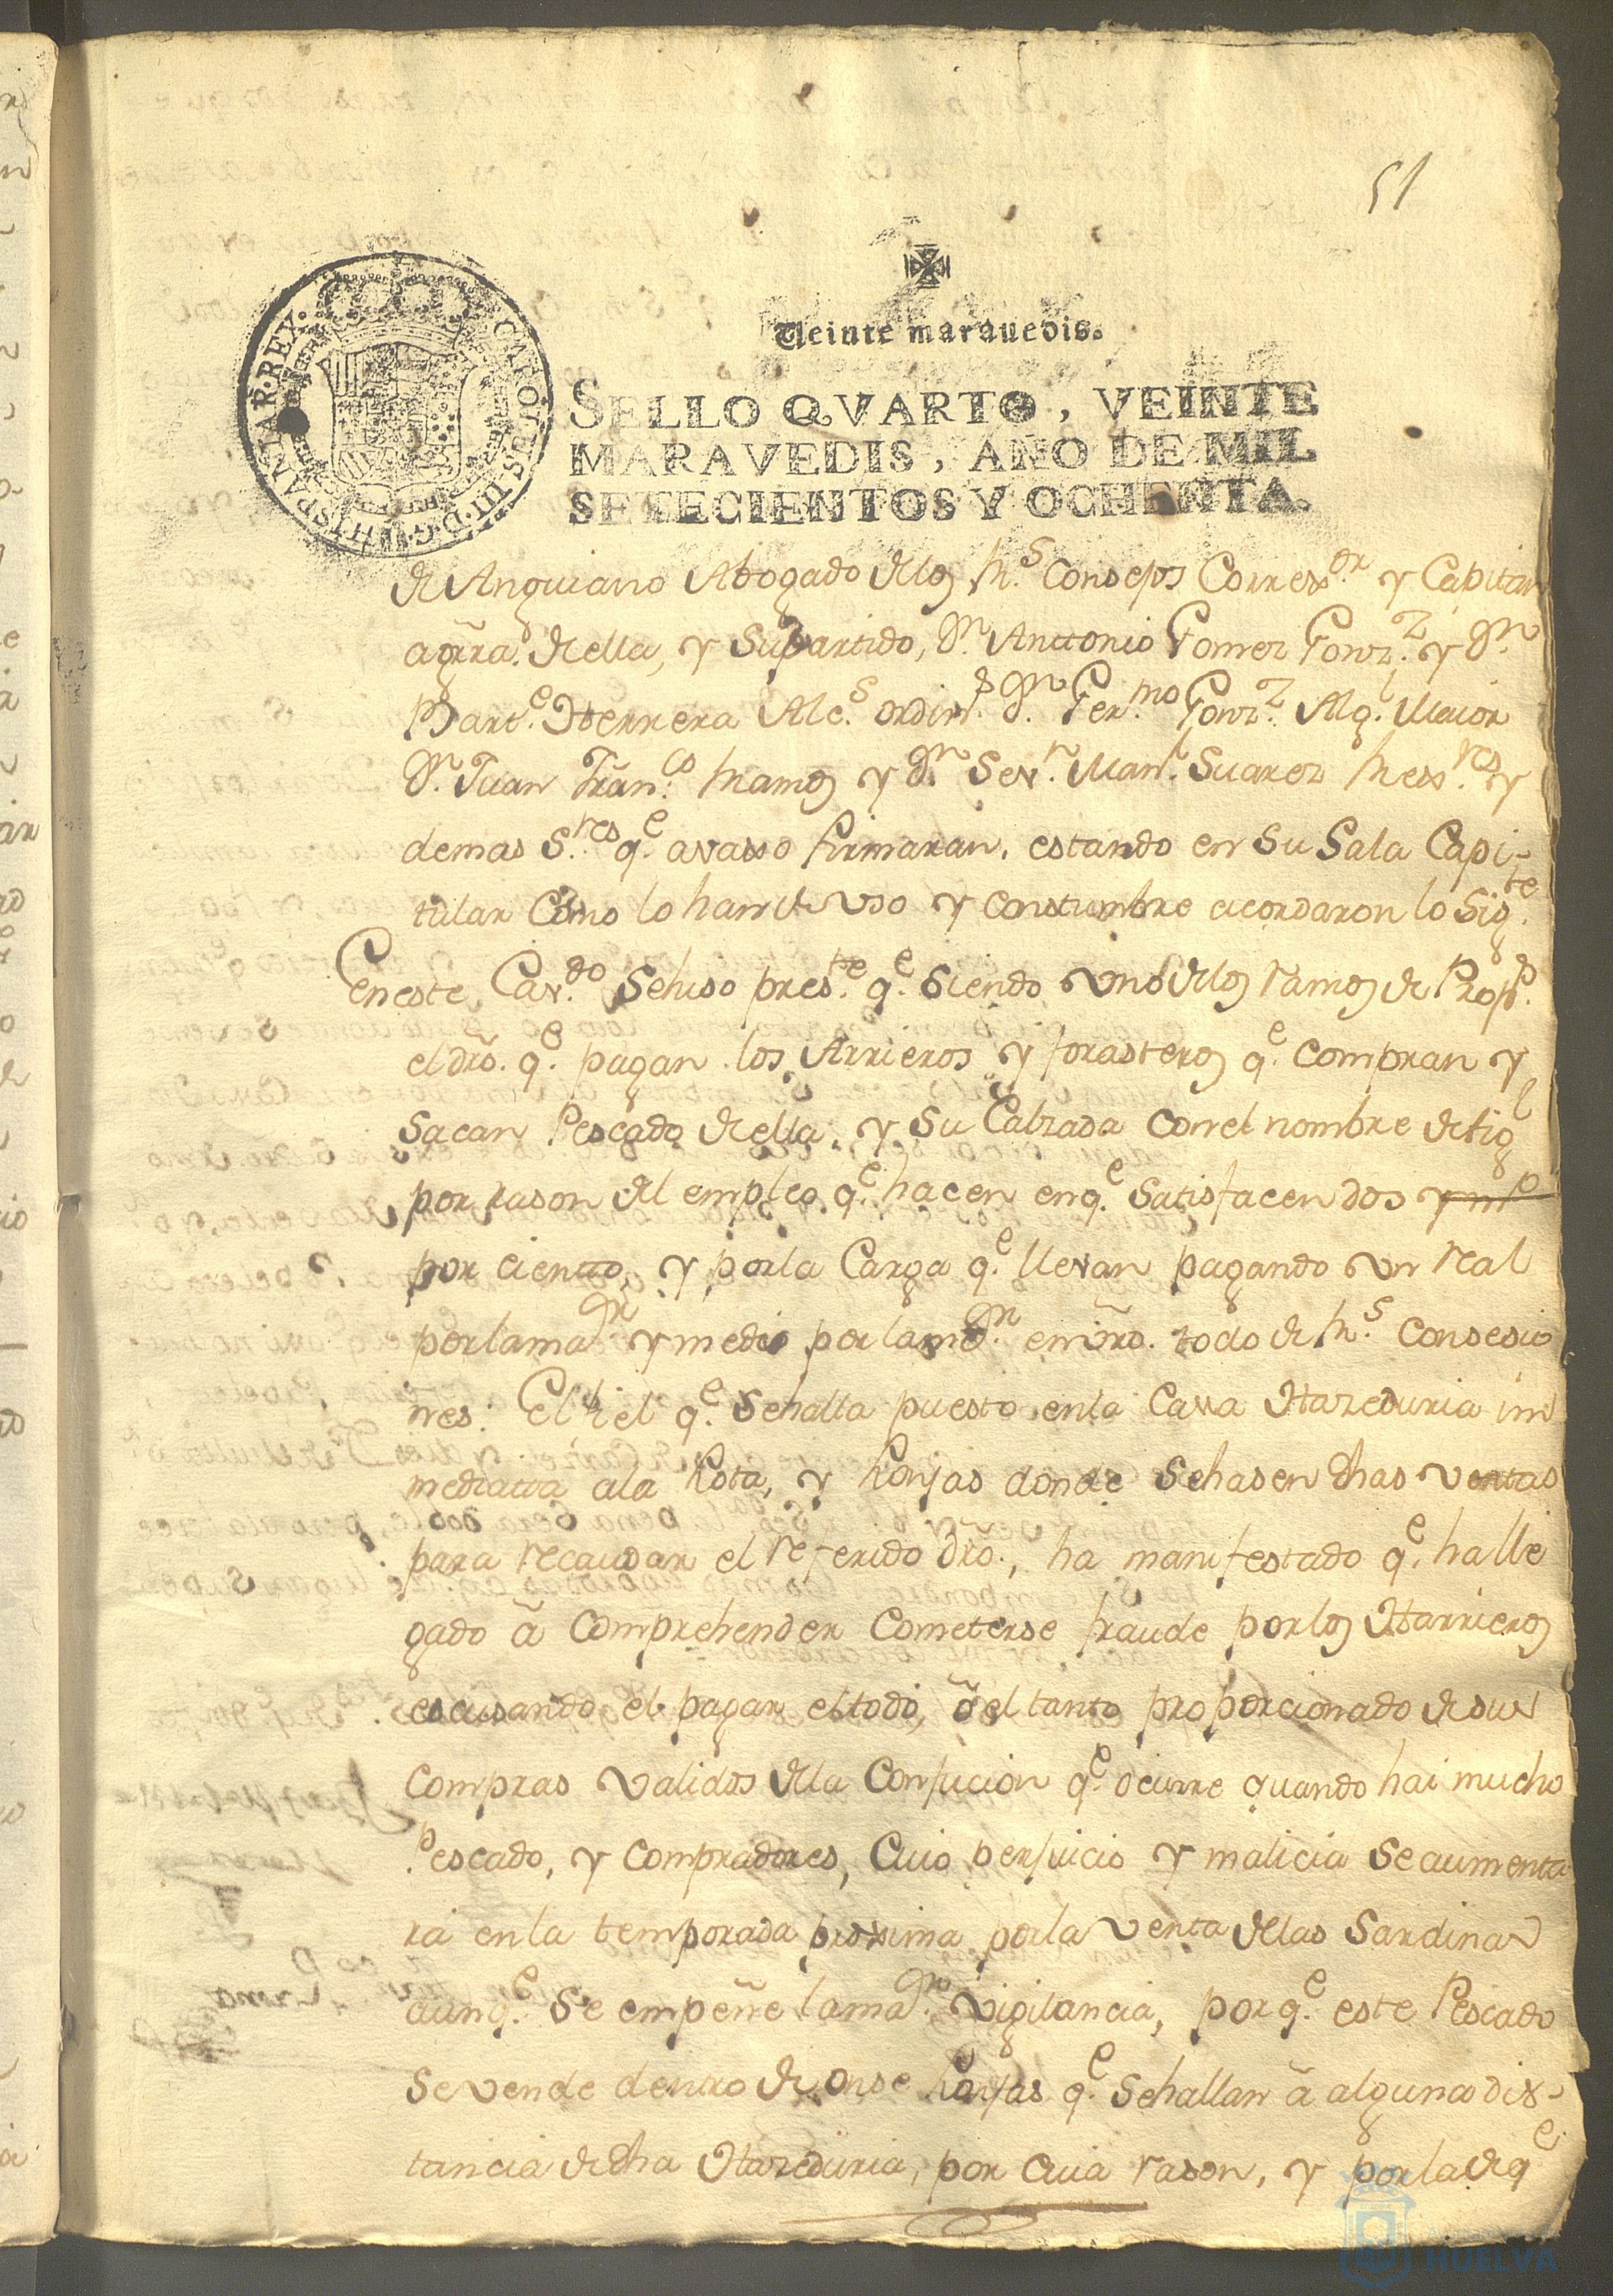 51
Veinte marauedis.
SELLO QVARTO, VEINTE
MARAVEDIS, AÑO DE MIL
SETECIENTOS Y OCHENTA.
CAROLUS III D.G. HISPANIAR. REX.
de Anguiano Abogado de los Rs. Consejos Correxor. y Capitan
aGrra. de ella, y Supartido, Dn. Anttonio Gomez Gonzz. y Dn.
Barte. Herrera Alcs. ordins. Dn. Germo. Gonzz. Algl. Maior
Dn. Juan Franco. Ramos y Dn. Sevn. Manl. Suarez Rexres. y
demas Sres. qe. avaxo firmaran, estando en Su Sala Capi-
tular Como lo han de uso y Constumbre acordaron lo Sigte.
En este Cavdo. Sehiso preste. qe. Siendo uno de los ramos de Props.
el dro. qe. pagan los Arrieros y forasteros qe. compran y
Sacan Pescado de ella, y Su Calzada con el nombre de figl
por rason del empleo qe. hacen en qe. Satisfacen dos
por ciento, y por la Carga qe. llevan pagando un real
por la maor y medio por la menor en vro. todo de Rs. Consesio
nes. El fiel qe. Sehalla puesto en la Casa Hazeduria in
mediata a la Rota, y Ronjas donde Sehasen dhas ventas
para recaudar el referido dro., ha manifestado qe. halle
gado a comprehender Cometerse fraude por los Harrieros
escusando el pagar el todo, o el tanto proporcionado de sus
Compras validos de la Confucion qe. ocurre quando hai mucho
Pescado, y Compradores, Cuio perjuicio y malicia Se aumenta
ra en la temporada proxima por la venta de las Sardinas
aunqe. Se empeñe la maor. vigilancia, por qe. este Pescado
Se vende dentro de onse Ronjas qe. Sehallan a alguna dis-
tancia de dha Hazeduria, por Cuia rason, y por la de qe
HUELVA